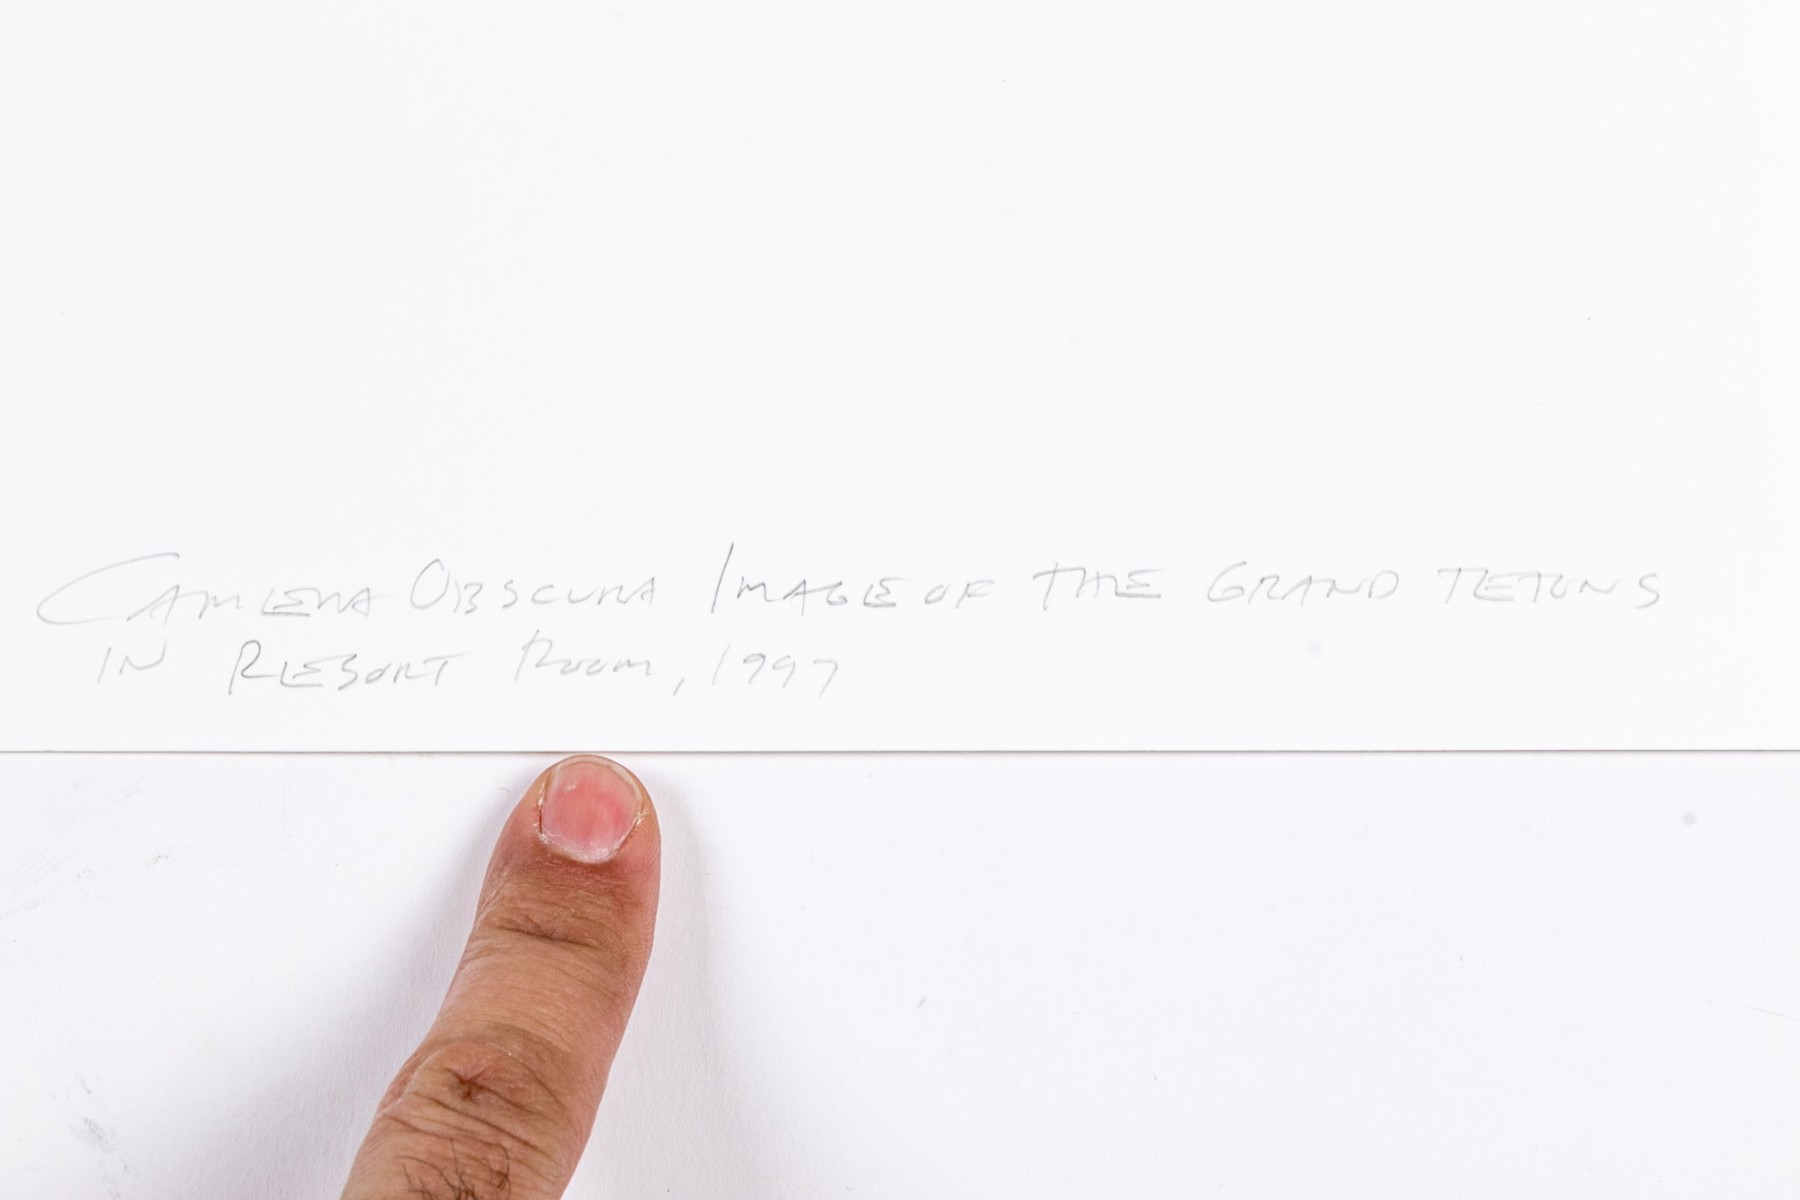 Camera Obscura Image of the Grand Tetons
in Resort Room, 1997